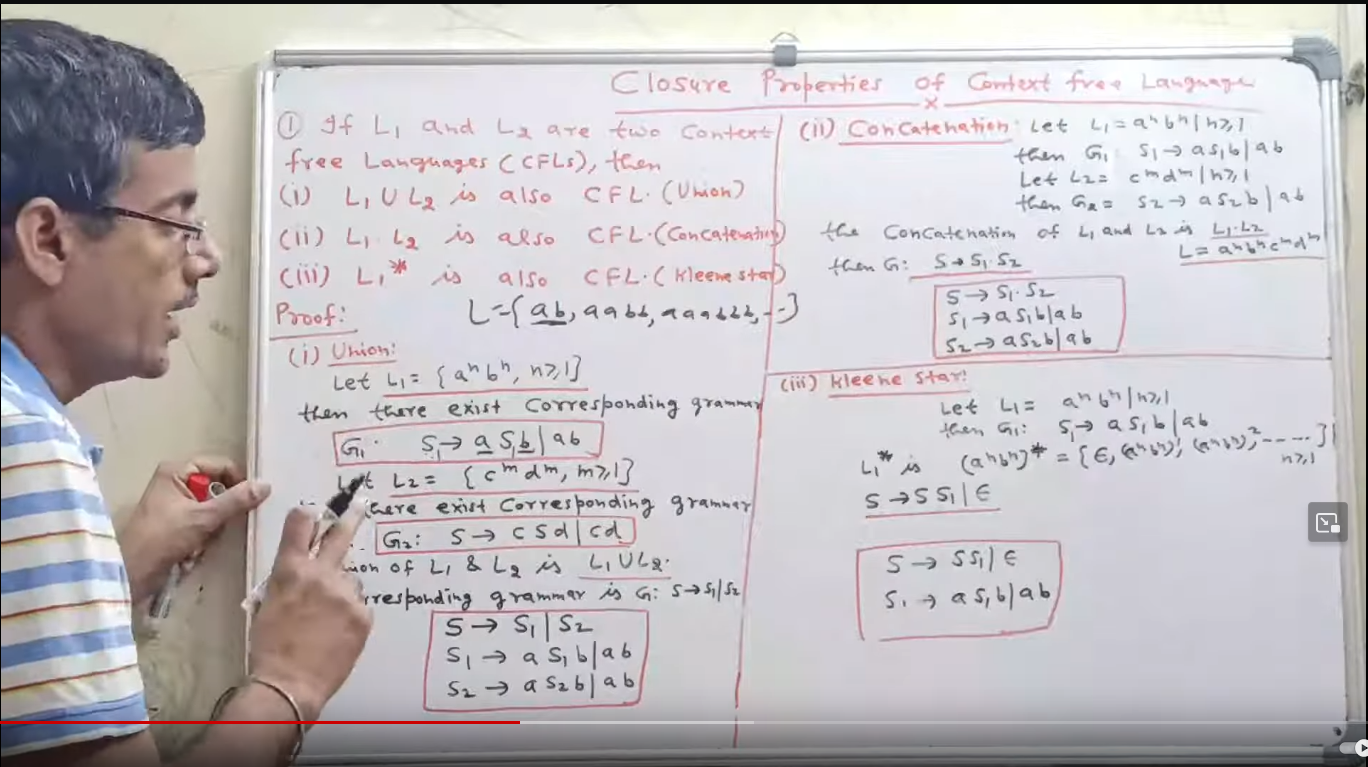 Closure Properties of Context free Language
x
① If L₁ and L₂ are two Context
free Languages (CFLs), then
(i) L₁ ∪ L₂ is also CFL. (Union)
(ii) L₁. L₂ is also CFL. (Concatenation)
(iii) L₁* is also CFL. (Kleene star)
Proof:
L={ab, aabb, aaabbb, ...}
(i) Union:
Let L₁ = {aⁿbⁿ, n≥1}
then there exist Corresponding grammar
G₁: S₁→ a S₁b | ab
Let L₂ = {cᵐdᵐ, m≥1}
there exist Corresponding grammar
G₂: S → c S d | cd
of L₁ & L₂ is L₁∪L₂.
grammar is G: S→S₁|S₂
S → S₁ | S₂
S₁ → a S₁ b | ab
S₂ → a S₂ b | ab
(ii) Concatenation: Let L₁ = aⁿbⁿ | n≥1
then G₁ S₁ → a S₁ b | ab
Let L₂ = cᵐdᵐ | n≥1
then G₂ = S₂ → a S₂ b | ab
the Concatenation of L₁ and L₂ is L₁.L₂
L = aⁿbⁿcᵐdᵐ
then G: S → S₁. S₂
S → S₁. S₂
S₁ → a S₁ b | ab
S₂ → a S₂ b | ab
(iii) Kleene star:
Let L₁ = aⁿbⁿ | n≥1
then G₁: S₁ → a S₁ b | ab
L₁* is (aⁿbⁿ)* = {∈, (aⁿbⁿ)¹, (aⁿbⁿ)², ------}
n≥1
S → S S₁ | ∈
S → S S₁ | ∈
S₁ → a S₁ b | ab